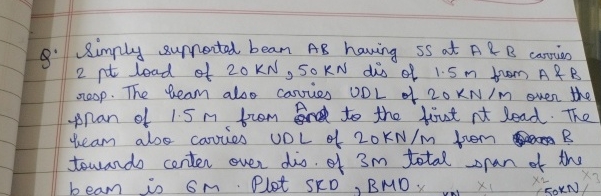 Q. Simply supported beam AB having SS at A & B carries
2 pt load of 20 KN, 50 KN dis of 1.5 m from A & B
resp. The beam also carries UDL of 20 KN/M over the
span of 1.5 M from A to the first pt load. The
beam also carries UDL of 20KN/M from B
towards center over dis. of 3m total span of the
beam is 6M. Plot SFD, BMD.
x1 x2 x3
50KN